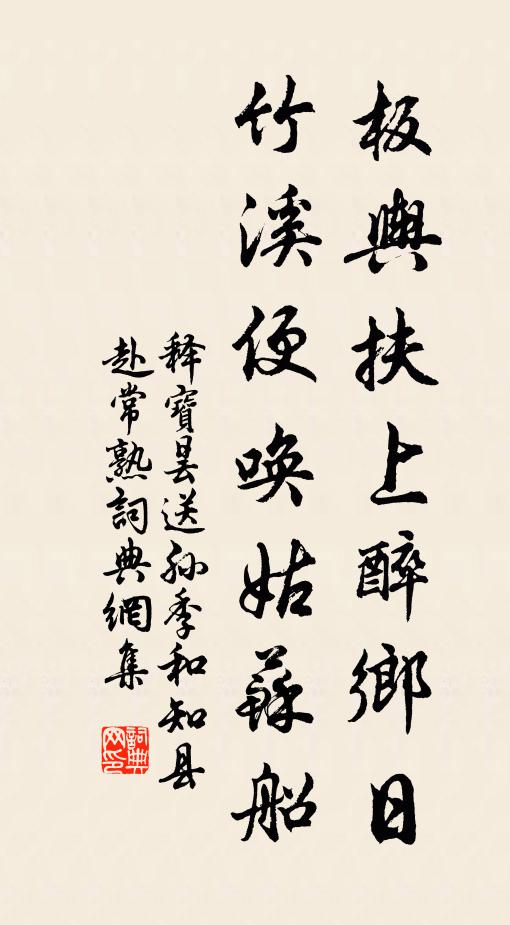 板輿扶上醉鄉日
竹溪便喚姑蘇船
释寶曇送孙季和知县
赴常熟詞典網集
詞典网印